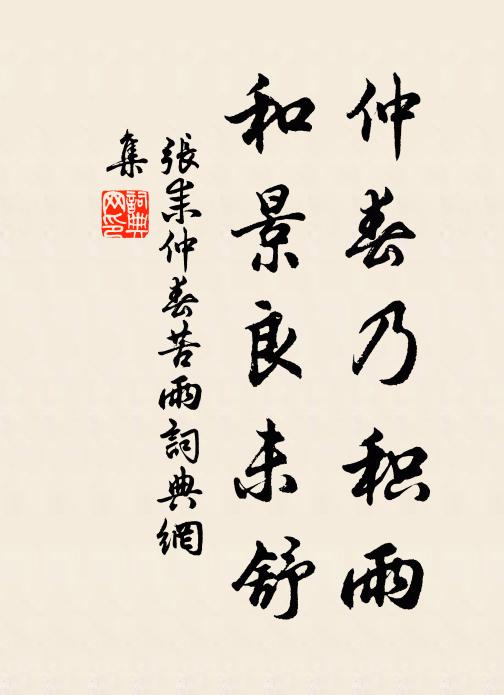 仲春乃积雨
和景良未舒
張耒仲春苦雨詞典網
集
詞典
网印